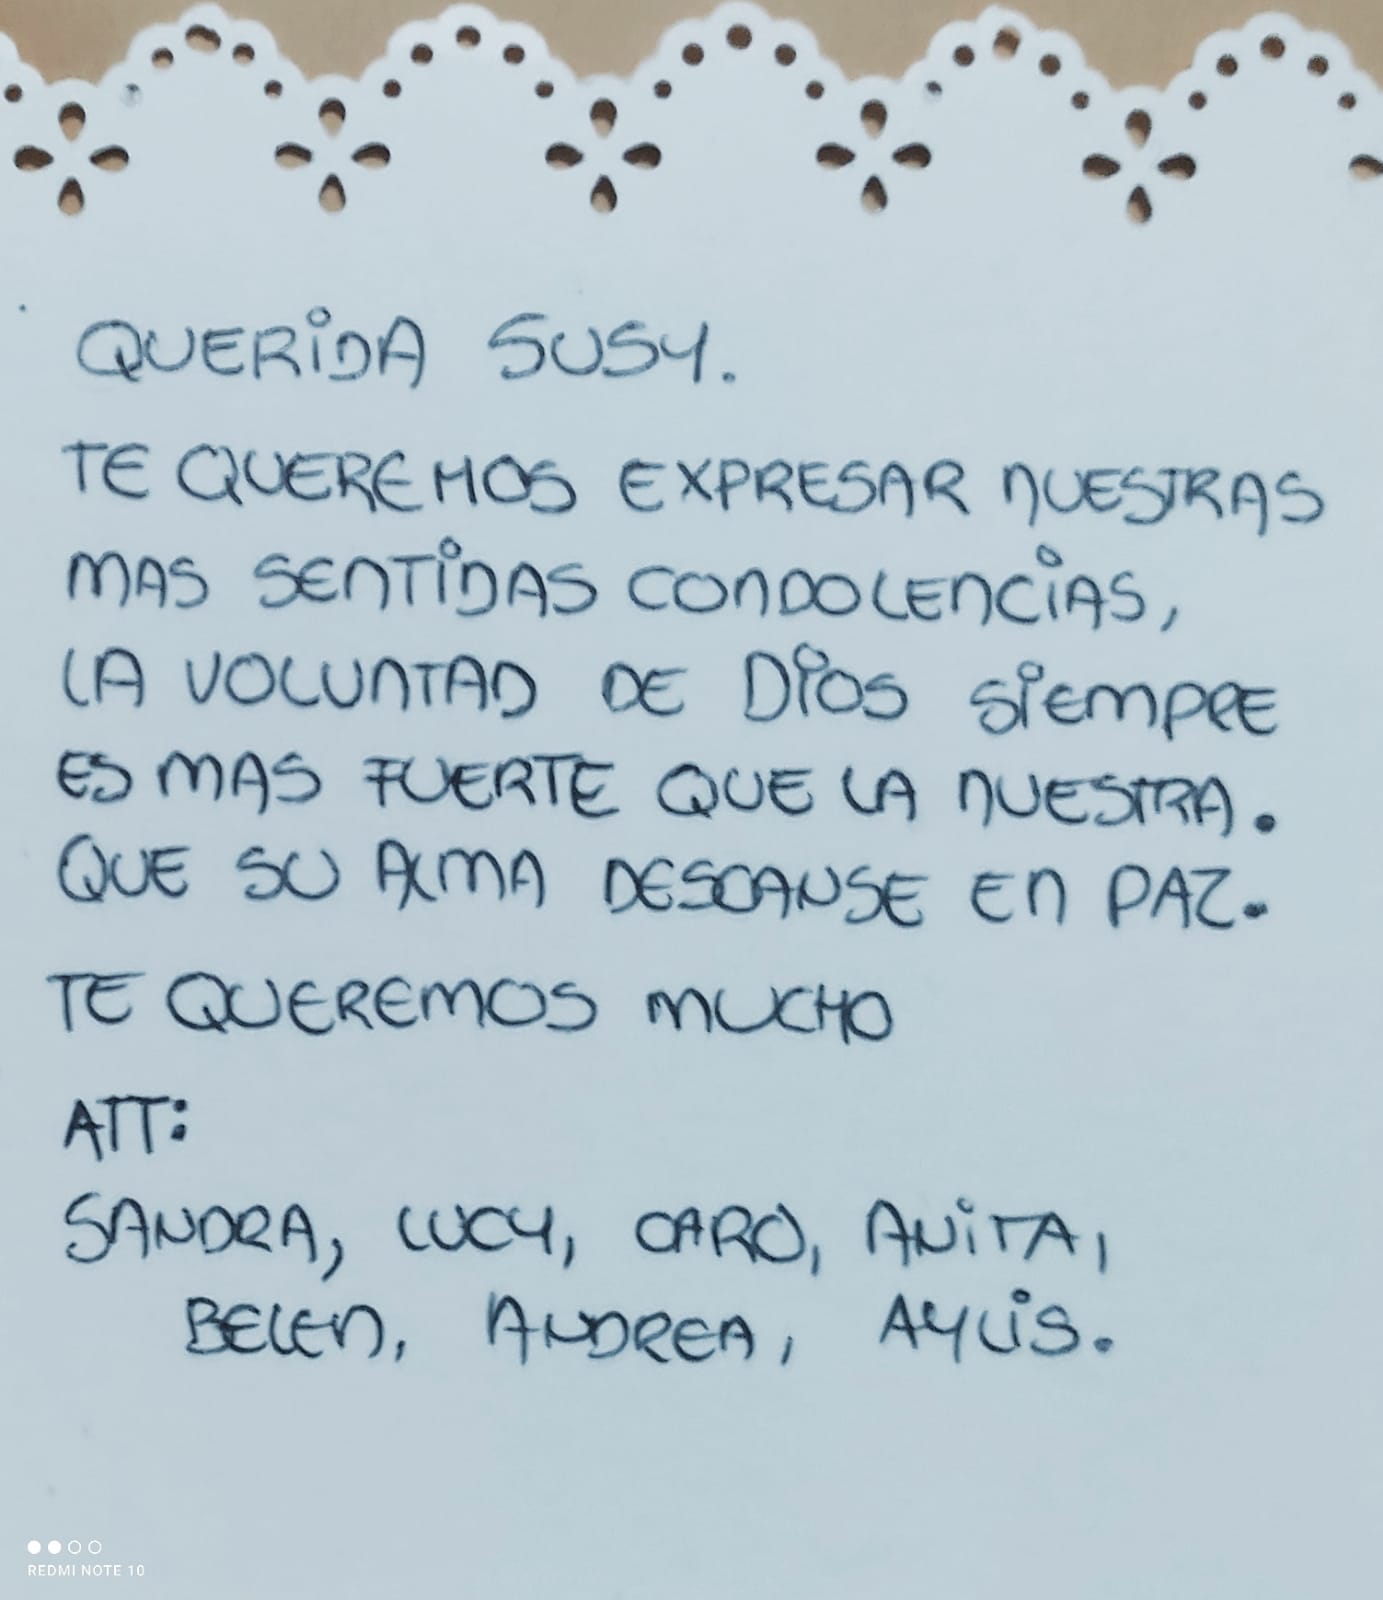 QUERIDA SUSY.
TE QUEREMOS EXPRESAR NUESTRAS
MAS SENTIDAS CONDOLENCIAS,
LA VOLUNTAD DE DIOS SIEMPRE
ES MAS FUERTE QUE LA NUESTRA.
QUE SU ALMA DESCANSE EN PAZ.
TE QUEREMOS MUCHO
ATT:
SANDRA, LUCY, CARO, ANITA,
BELEN, ANDREA, AYLIS.
REDMI NOTE 10